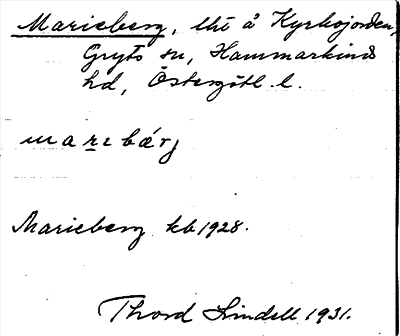 Marieberg, lht å Kyrkojorden,
Gryts sn, Hammarkinds
hd, Östergötl. l.
marıbárj
Marieberg kb 1928.
Thord Lindell 1931.